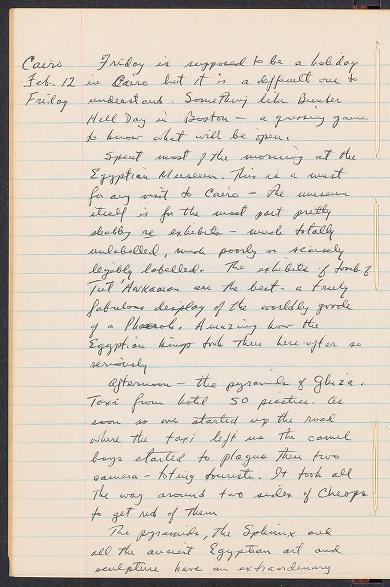 Cairo Friday is supposed to be a holiday
Feb. 12 in Cairo but it is a difficult one to
Friday understand. Something like Bunker
Hill Day in Boston – a guessing game
to know what will be open.
Spent most of the morning at the
Egyptian Museum. This is a must
for any visit to Cairo – the museum
itself is for the most part pretty
shabby re exhibits – much totally
unlabelled, much poorly or scarcely
legibly labelled. The exhibits of tomb of
Tut'Ankamon are the best – a truly
fabulous display of the worldly goods
of a Pharoah. Amazing how the
Egyptian kings took their here-after so
seriously
Afternoon – the pyramids of Ghiza.
Taxi from hotel 50 piastres. As
soon as we started up the road
where the taxi left us the camel
boys started to plague these two
camera-toting tourists. It took all
the way around two sides of Cheops
to get rid of them
The pyramids, the Sphinx and
all the ancient Egyptian art and
sculpture have an extraordinary